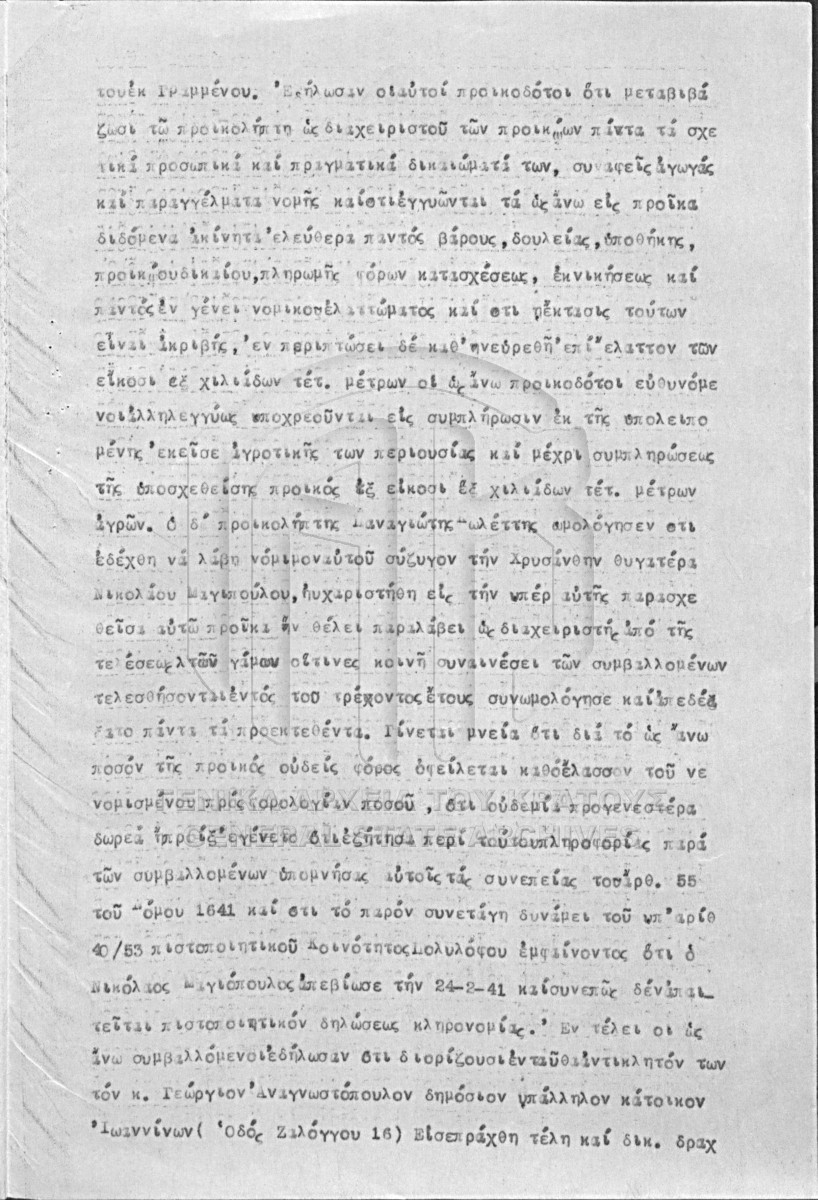 τουέκ Γραμμένου. Ἐδήλωσαν οἱαὐτοί προικοδόται ὅτι μεταβιβά
ζωσι τῶ προικολήπτη ὡς διαχειριστοῦ τῶν προικώων πάντα τά σχε
τικά προσωπικά καί πραγματικά δικαιώματά των, συναφεῖς ἀγωγάς
καί παραγγέλματα νομῆς καίὅτιἐγγυῶνται τά ὡς ἄνω εἰς προῖκα
διδόμενα ἀκίνητα ἐλεύθερα παντός βάρους, δουλείας, ὑποθήκης,
προικώουδικαίου, πληρωμῆς φόρων κατασχέσεως, ἐκνικήσεως καί
παντόςἐν γένει νομικοῦἐλαττώματος καί ὅτι ἡἔκτασις τούτων
εἶναι ἀκριβής, ἐν περιπτώσει δέ καθ' ἥνεὑρεθῆ ἐπί ἔλαττον τῶν
εἴκοσι ἕξ χιλιάδων τέτ. μέτρων οἱ ὡς ἄνω προικοδόται εὐθυνόμε
νοιἀλληλεγγύως ὑποχρεοῦνται εἰς συμπλήρωσιν ἐκ τῆς ὑπολειπο
μένης ἐκεῖσε ἀγροτικῆς των περιουσίας καί μέχρι συμπληρώσεως
τῆς ὑποσχεθείσης προικός ἐξ εἴκοσι ἕξ χιλιάδων τέτ. μέτρων
ἀγρῶν. Ὁ δέ προικολήπτης Παναγιώτης ὡμολόγησεν ὅτι
ἐδέχθη νά λάβη νόμιμοναὐτοῦ σύζυγον τήν Χρυσάνθην θυγατέρα
Νικολάου Μαγιοπούλου, ηὐχαριστήθη εἰς τήν ὑπέρ αὐτῆς παρασχε
θεῖσα αὐτῶ προῖκα ἥν θέλει παραλάβει ὡς διαχειριστής ἀπό τῆς
τελέσεως τῶν γάμων οἵτινες κοινῆ συναινέσει τῶν συμβαλλομένων
τελεσθήσονταιἐντός τοῦ τρέχοντος ἔτους συνωμολόγησε καίἀπεδέξ
ατο πάντα τά προεκτεθέντα. Γίνεται μνεία ὅτι διά τό ὡς ἄνω
ποσόν τῆς προικός οὐδείς φόρος ὀφείλεται καθόἔλασσον τοῦ νε
νομισμένου πρόςφορολογίαν ποσοῦ, ὅτι οὐδεμία προγενεστέρα
δωρεά ἤπροίξ ἐγένετο ὅτιἐζήτησα περί τούτουπληροφορίας παρά
τῶν συμβαλλομένων ὑπομνήσας αὐτοῖςτάς συνεπείας τοῦἀρθ. 55
τοῦ Νόμου 1641 καί ὅτι τό παρόν συνετάγη δυνάμει τοῦ ὑπ'ἀριθ
40/53 πιστοποιητικοῦ ΚοινότητοςΠολυλόφου ἐμφαίνοντος ὅτι ὁ
Νικόλαος Μαγιόπουλοςἀπεβίωσε τήν 24-2-41 καίσυνεπῶς δένἀπαι_
τεῖται πιστοποιητικόν δηλώσεως κληρονομίας. Ἐν τέλει οἱ ὡς
ἄνω συμβαλλόμενοιἐδήλωσαν ὅτι διορίζουσιἐνταῦθαἀντίκλητόν των
τόν κ. Γεώργιον Ἀναγνωστόπουλον δημόσιον ὑπάλληλον κάτοικον
Ἰωαννίνων( Ὁδός Ζαλόγγου 16) Εἰσεπράχθη τέλη καί δικ. δραχ
ΓΕΝΙΚΑ ΑΡΧΕΙΑ ΤΟΥ ΚΡΑΤΟΥΣ
GENERAL STATE ARCHIVES